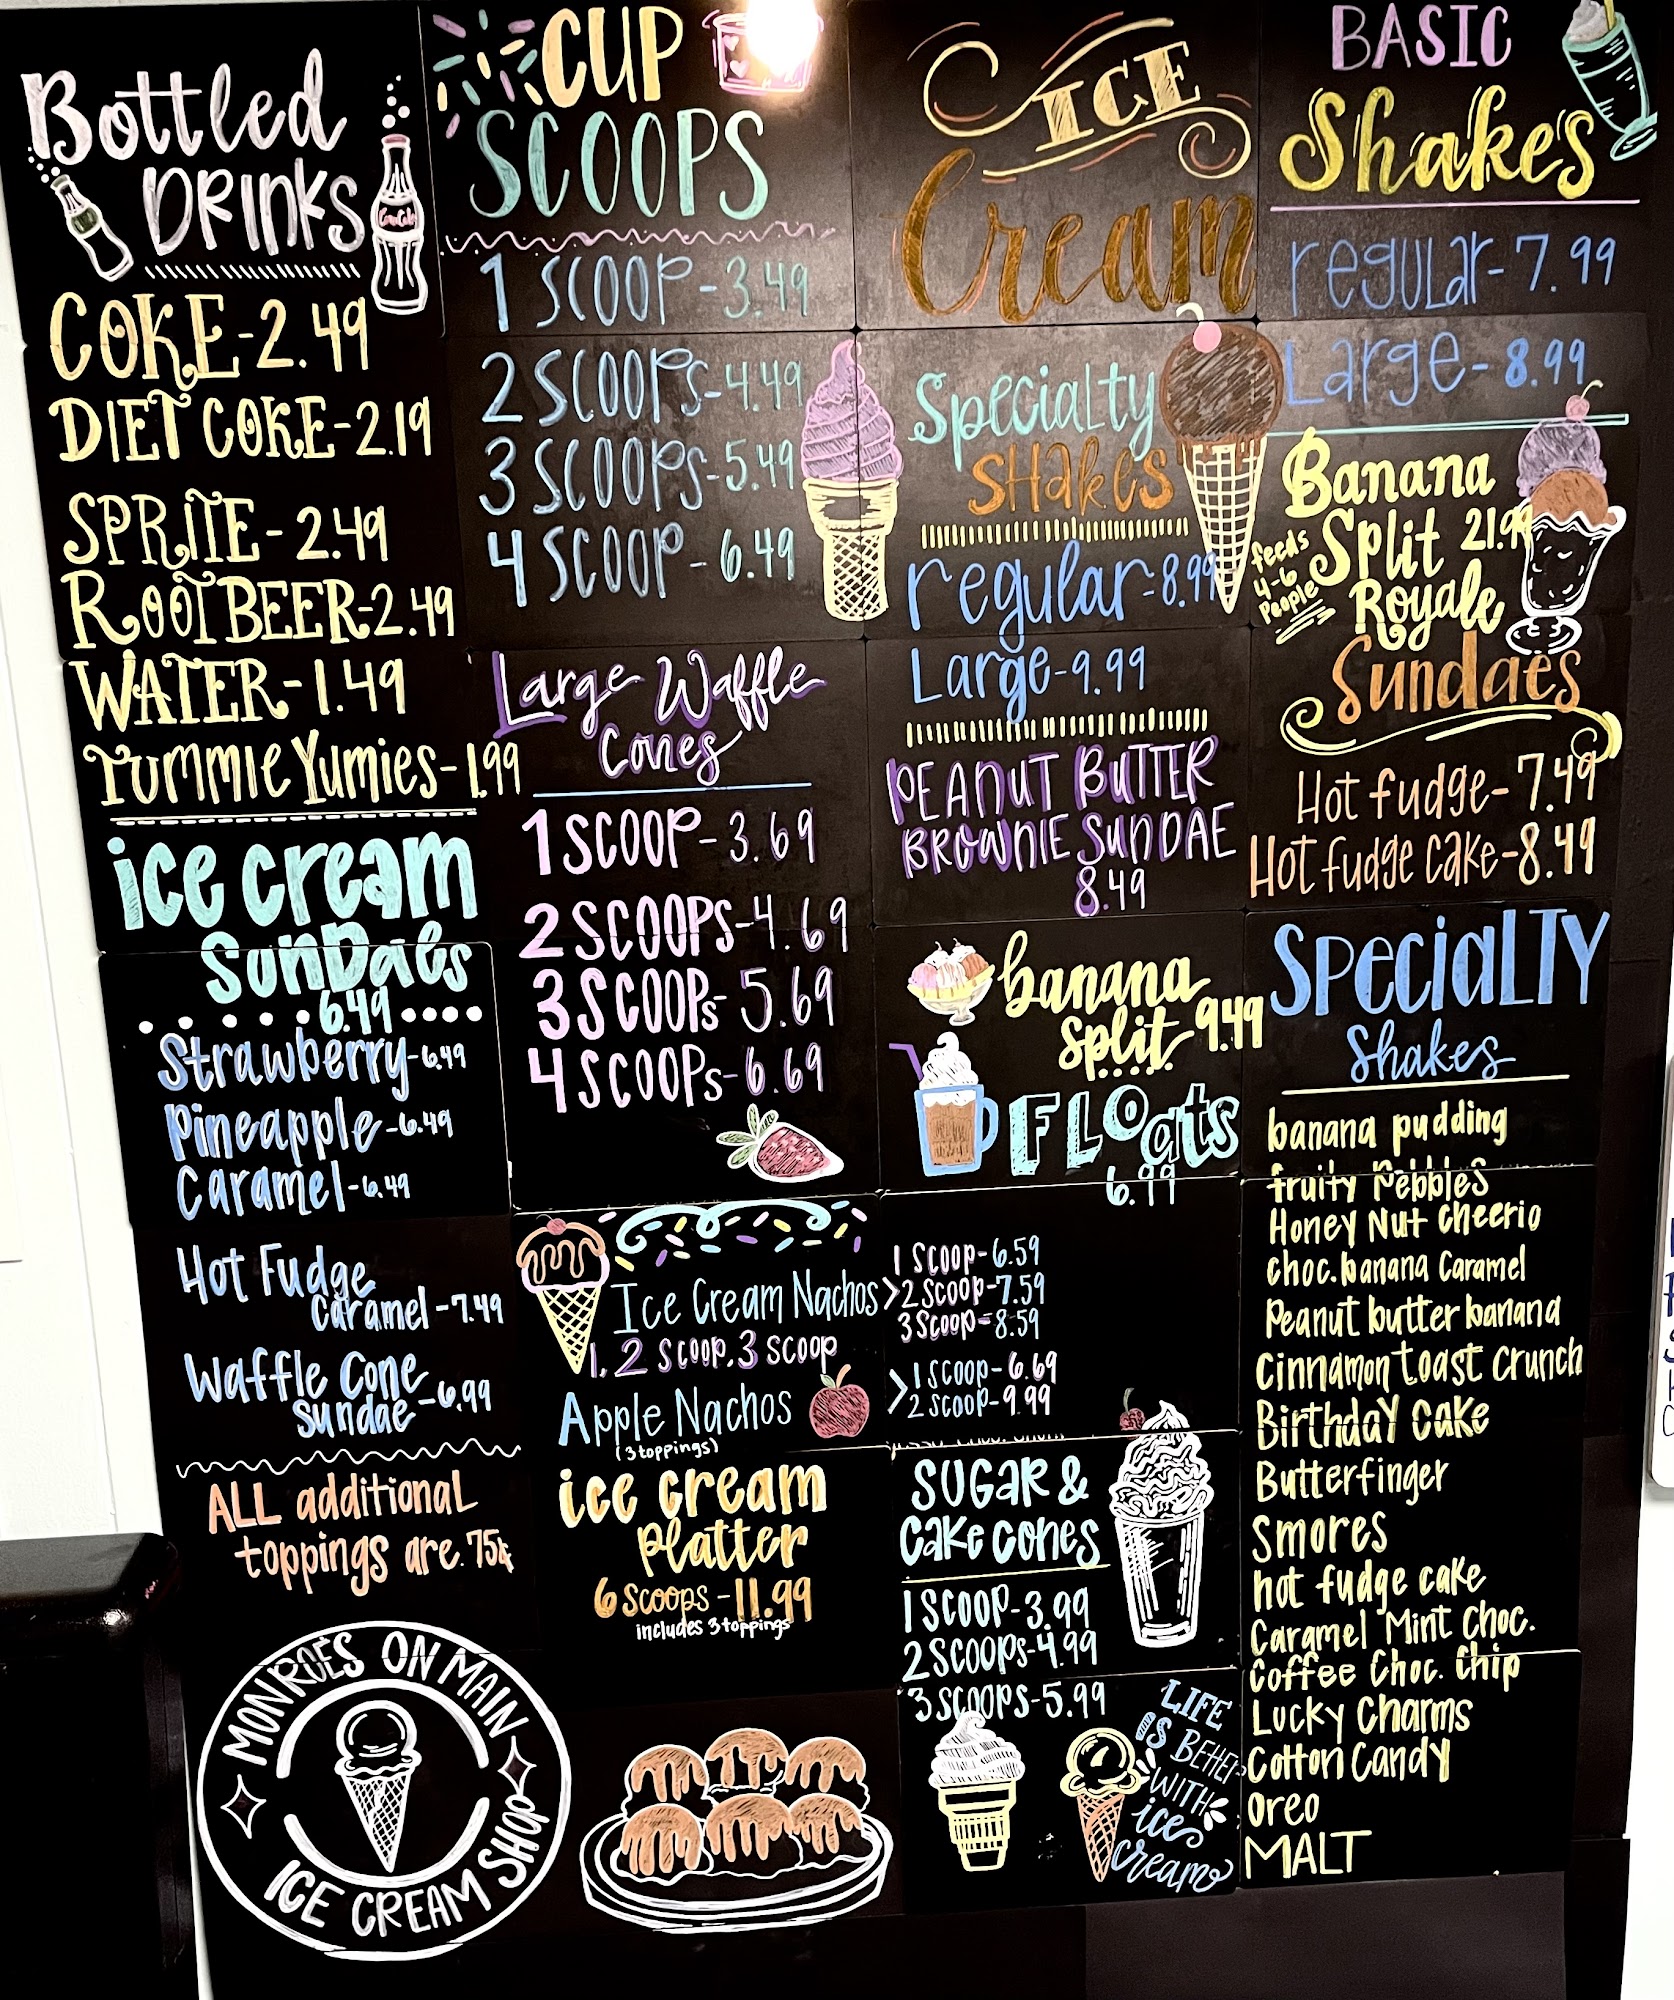 Bottled
DRINKS
Coca Cola
COKE-2.49
DIET COKE-2.19
SPRITE-2.49
ROOT BEER-2.49
WATER-1.49
Yummie Yumies-1.99
ice cream
SunDaes
6.49
Strawberry-6.49
Pineapple-6.49
Caramel-6.49
Hot Fudge
Caramel-7.49
Waffle Cone
Sundae-6.99
ALL additional
toppings are .75¢
MONROES ON MAIN
ICE CREAM SHOP
CUP
SCOOPS
1 SCOOP-3.49
2 SCOOPS-4.49
3 SCOOPS-5.49
4 SCOOP-6.49
Large Waffle
Cones
1 SCOOP-3.69
2 SCOOPS-4.69
3 SCOOPs-5.69
4 SCOOPs-6.69
Ice Cream Nachos
1, 2 scoop, 3 scoop
Apple Nachos
(3 toppings)
ice cream
platter
6 scoops-11.99
includes 3 toppings
ICE
Cream
Specialty
SHakes
regular-8.99
Large-9.99
PEANUT BUTTER
BROWNIE SUNDAE
8.49
banana
split-9.49
FLOats
6.99
1 Scoop-6.59
>2 Scoop-7.59
3 Scoop=8.59
>1 scoop-6.69
2 scoop-9.99
SUGAR &
CaKe CONES
1 SCOOP-3.99
2 SCOOPs-4.99
3 SCOOPS-5.99
LIFE
IS BETTER
WITH
ice
cream
BASIC
Shakes
regular-7.99
Large-8.99
Banana
Split 21.99
Royale
feeds
4-6
People
Sundaes
Hot fudge-7.49
Hot fudge cake-8.49
SPeciaLTY
Shakes
banana pudding
fruity Pebbles
Honey Nut Cheerio
choc. banana Caramel
Peanut butter banana
Cinnamon toast crunch
Birthday Cake
Butterfinger
Smores
hot fudge cake
Caramel Mint Choc.
Coffee Choc. Chip
Lucky Charms
Cotton Candy
Oreo
MALT